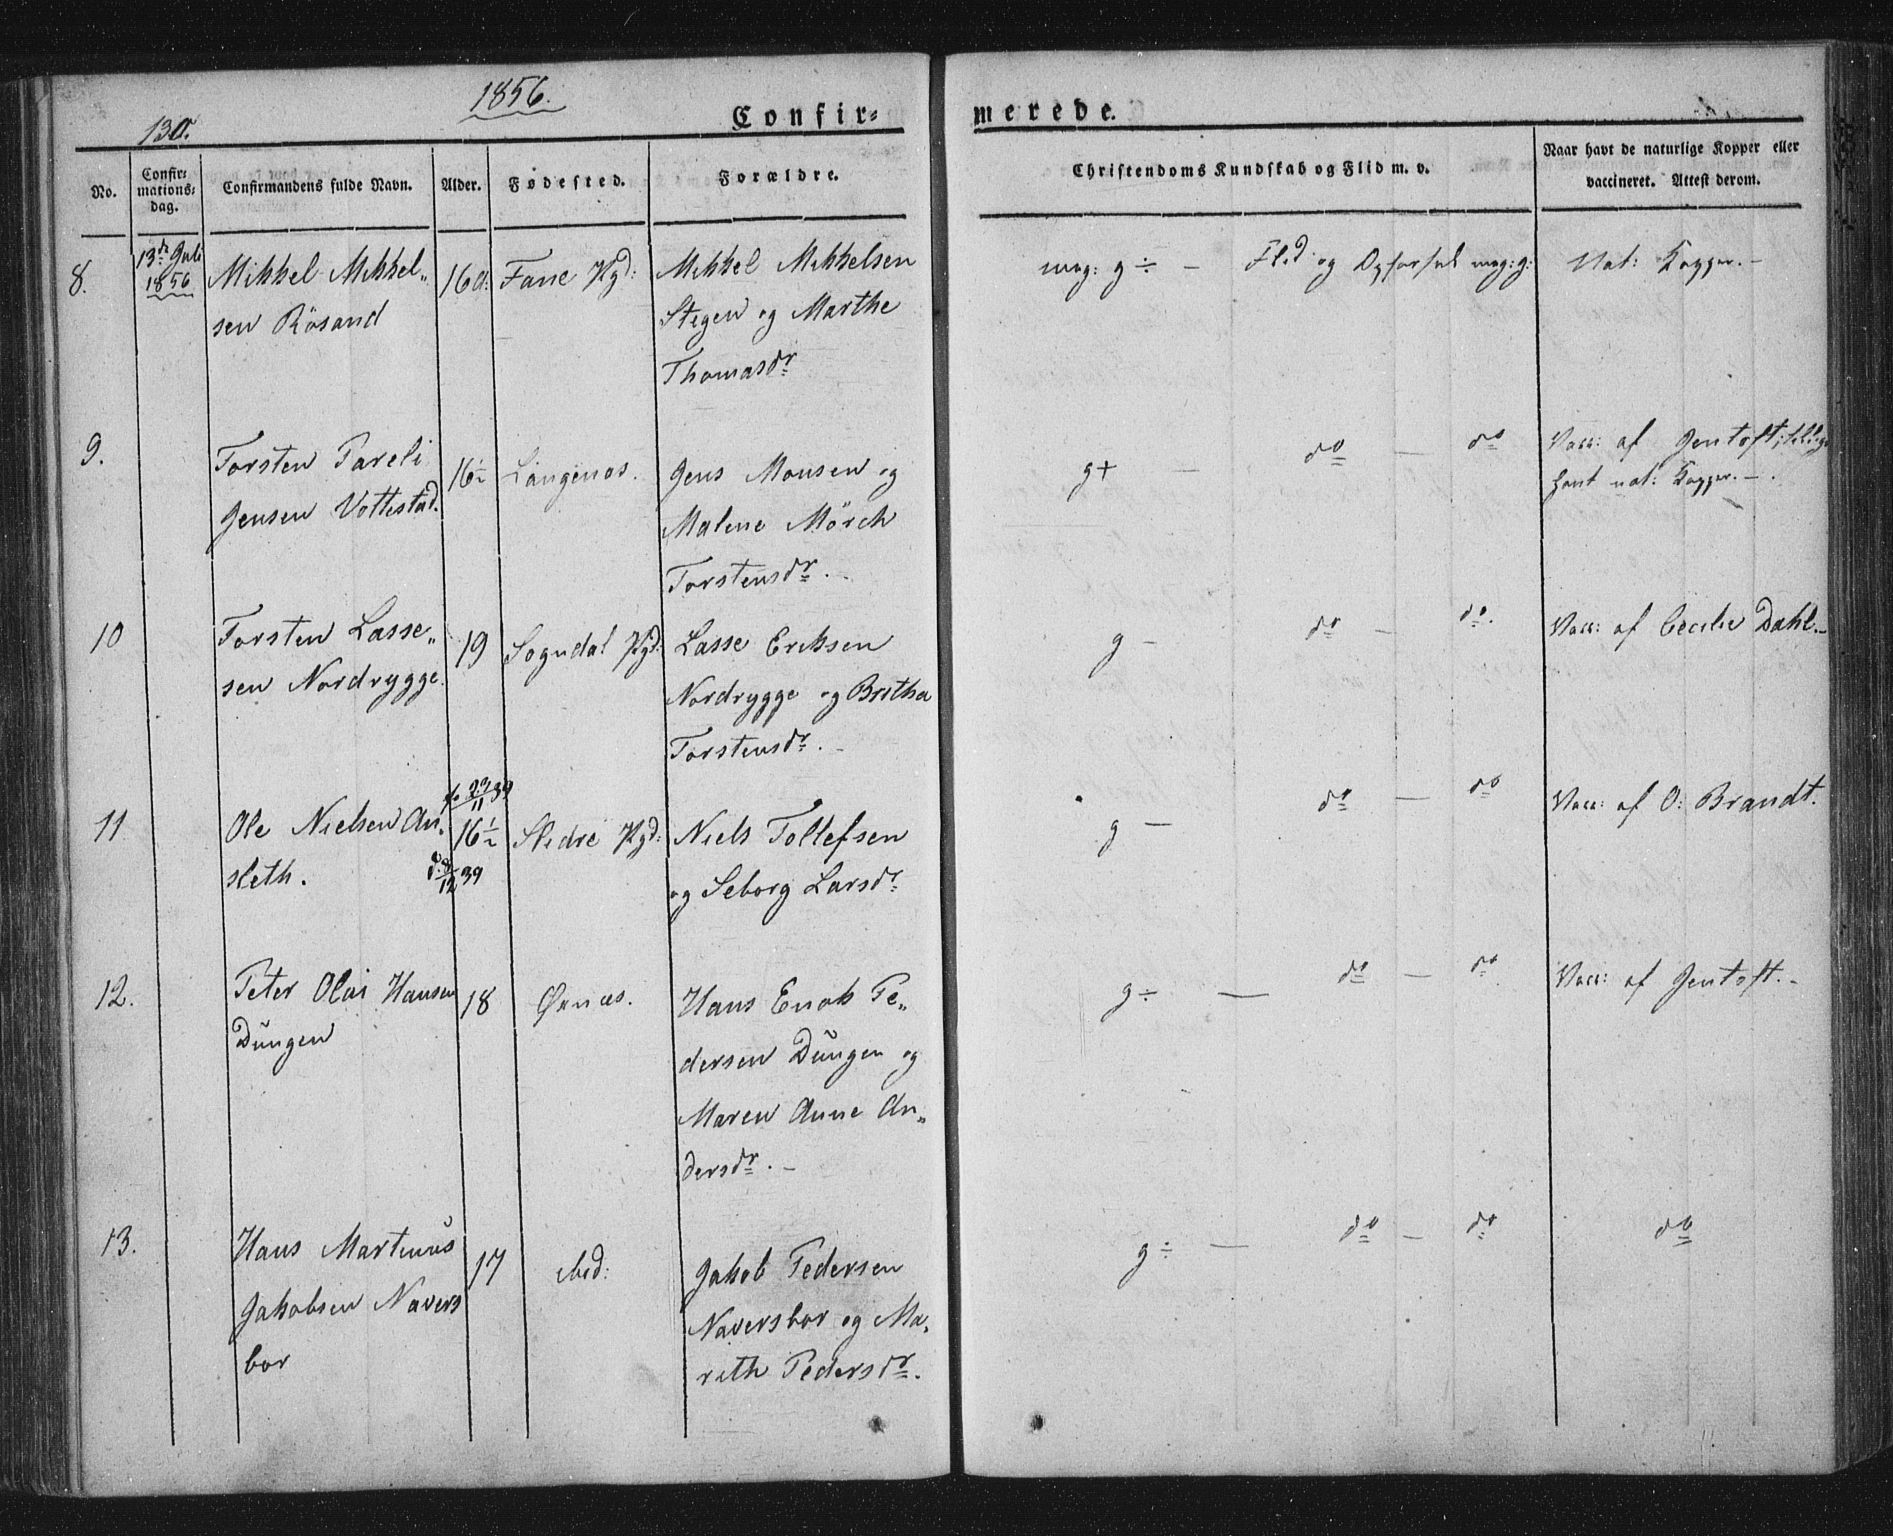 1856.
130.
Confir=
merede.
No.
Confir=
mations=
dag.
Confirmandens fulde Navn.
Alder.
Fødested.
Forældre.
Christendoms Kundskab og Flid m. v.
Naar havt de naturlige Kopper eller
vaccineret. Attest derom.
8.
13de Juli
1856
Mikkel Mikkel„
sen Rösand
16 a:
Fane Pgd:
Mikkel Mikkelsen
Stegen og Marthe
Thomasdr
mag: g ÷ —
Flid og Opførsel mag: g:
Nat: Kopper. —
9.
Torsten Pareli
Jensen Vottestad.
16½
Langenæs.
Jens Monsen og
Malene Mörch
Torstensdr. —
g+ —
do — do
Vacc: af Gentoft;
havt nat: Kopper. — .
10
Torsten Lasse„
sen Nordrygge.
19
Sogndal Pgd:
Lasse Eriksen
Nordrygge og Britha
Torstensdr. —
g —
do — do.
Vacc: af Cecilie Dahl. —
11
Ole Nielsen An„
sleth.
16½
Slidre Pgd:
Niels Tollefsen
og Seborg Larsdr
g —
do — do
Vacc: af O: Brandt.
12.
Peter Olai Hansen
Dŭngen
18
Ørnæs.
Hans Enok Pe„
dersen Dŭngen og
Maren Anne An„
dersdr. —
g ÷ —
do — do
Vacc: af Gentoft. —
13.
Hans Martinŭs
Jakobsen Navers
bor
17
ibid:
Jakob Pedersen
Naversbor og Ma„
rith Pedersdr.
g ÷ —
do — do
do